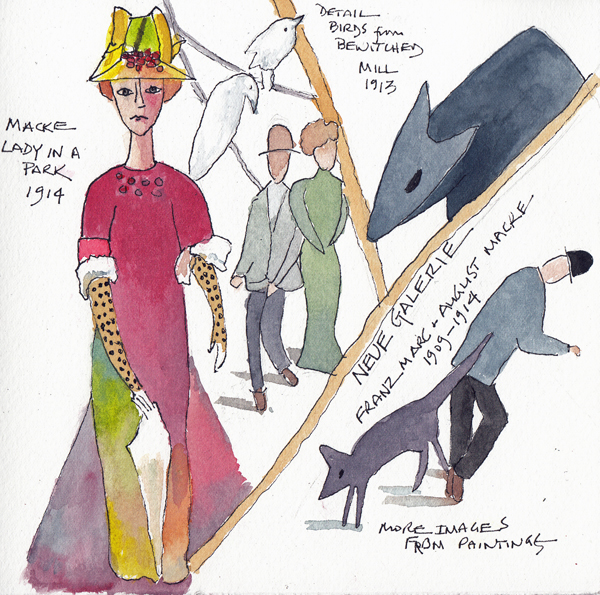 DETAIL
BIRDS from
BEWITCHED
MILL
1913
MACKE
LADY IN A
PARK
1914
NEUE GALERIE
FRANZ MARC + AUGUST MACKE
1909-1914
MORE IMAGES
FROM PAINTINGS